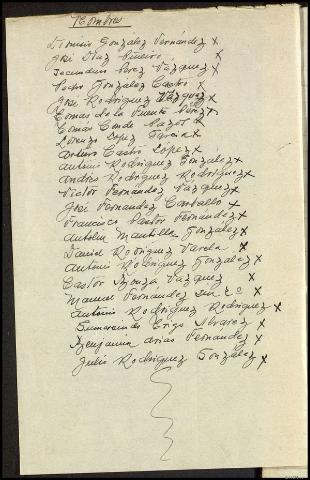 Nombres
Dionisio Gonzalez Fernández x
José Diaz Piñeiro x
Secundino Perez Vázquez x
Pedro Gonzalez Castro x
José Rodriguez Vázquez x
Tomas de la Puente Pérez x
Tomas Conde x
Lorenzo Lopez Garcia x
Arturo Castro López x
Antonio Rodriguez Gonzalez x
Andres Rodriguez Rodriguez x
Victor Fernández Vazquez x
José Fernandez Carballo x
Francisco Pastor Fernandez x
Antolin Mantilla Gonzalez x
Daniel Rodriguez Varela x
Antonio Rodriguez Gonzalez x
Castor Vazquez x
Manuel Fernandez sin 2º x
Antonio Rodriguez Rodriguez x
Gumersindo Trigo Alvarez x
Benjamin Arias Fernandez x
Julio Rodriguez González x